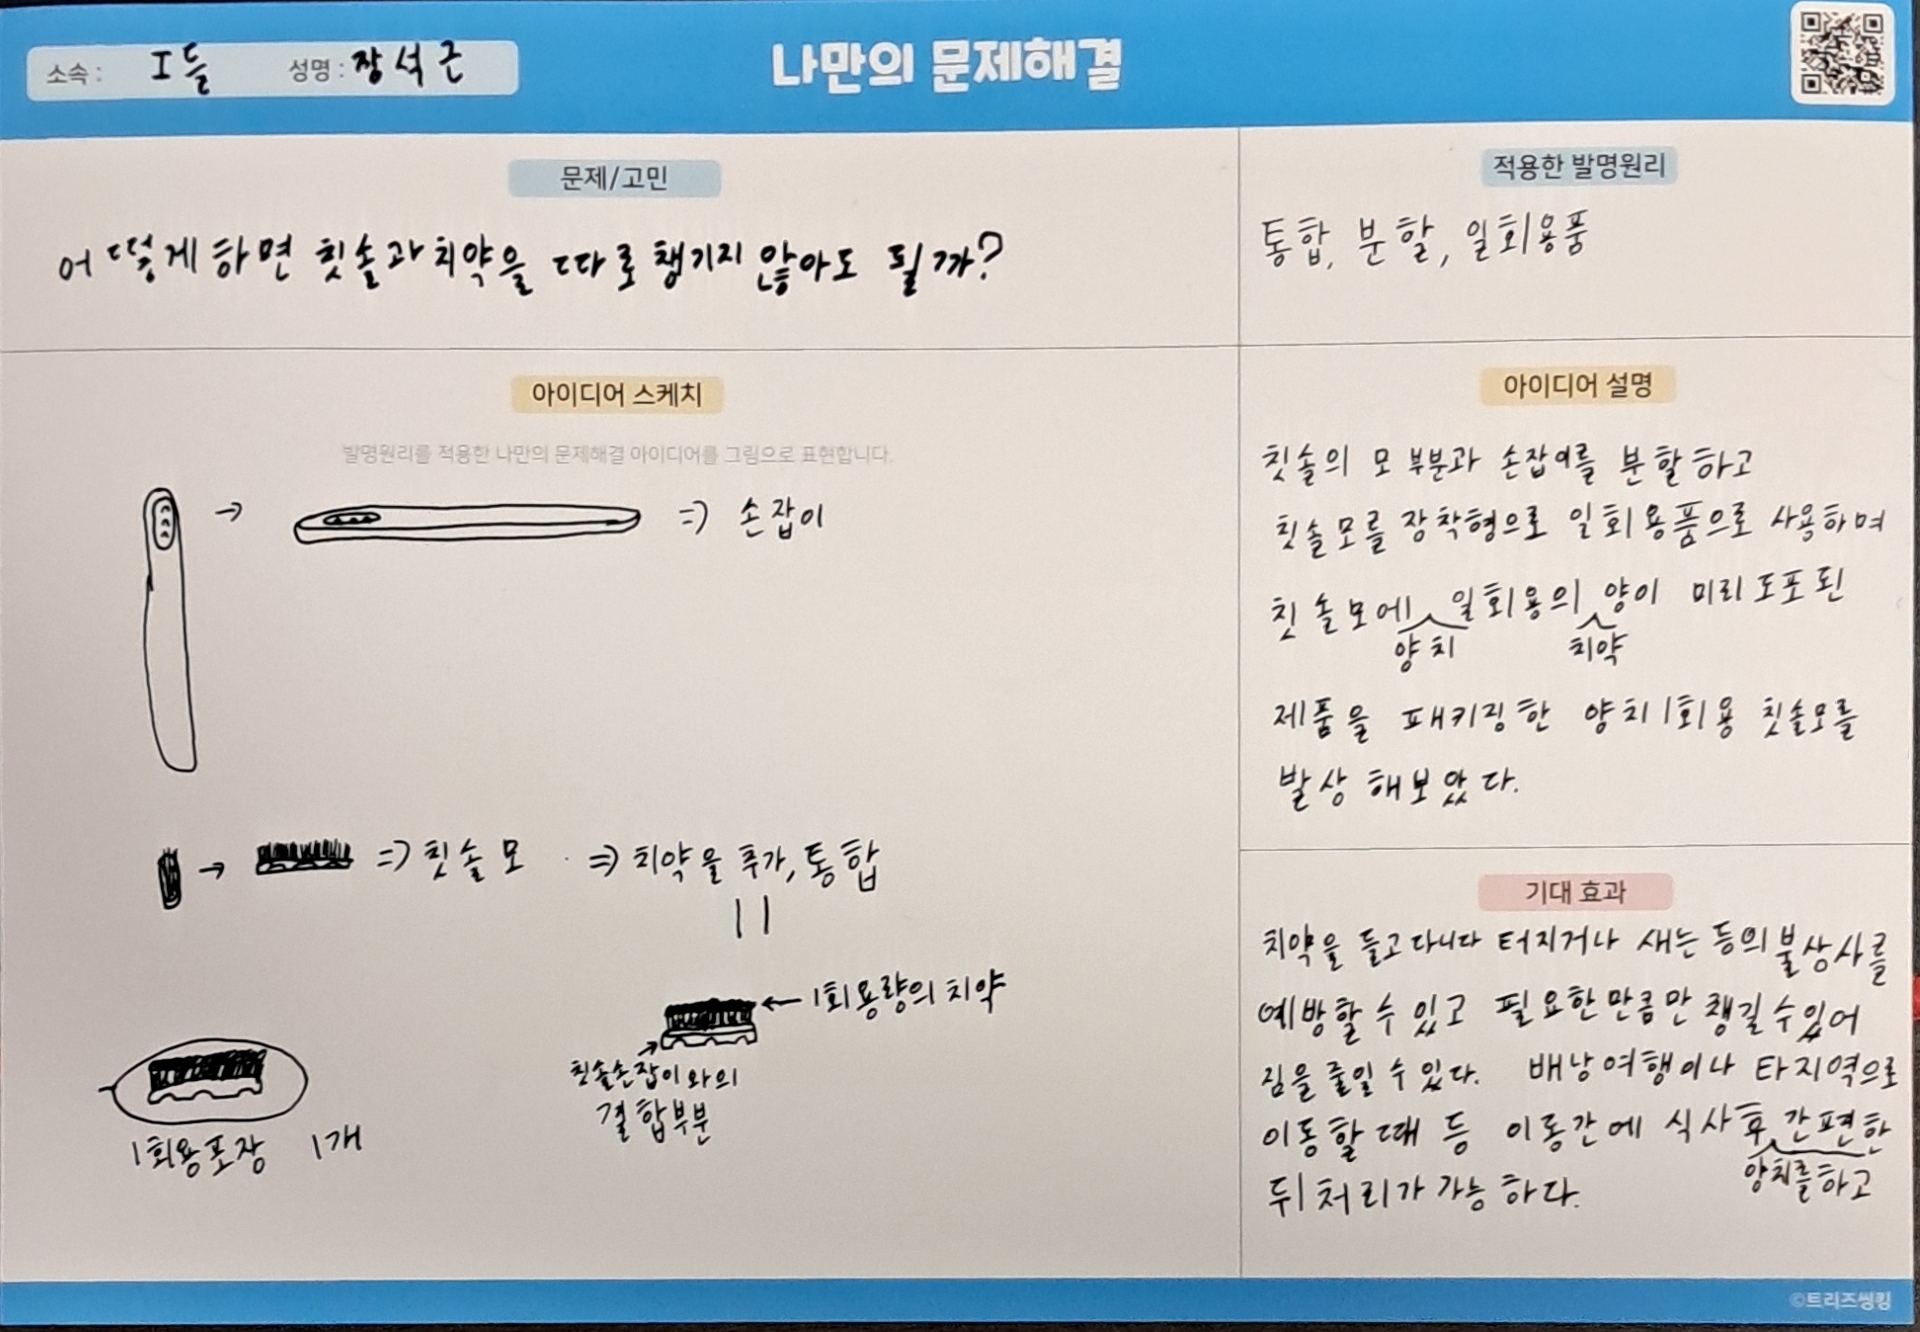 소속 : I들 성명 : 장석근
나만의 문제해결
문제/고민
어떻게하면 칫솔과 치약을 따로 챙기지 않아도 될까?
적용한 발명원리
통합, 분할, 일회용품
아이디어 스케치
발명원리를 적용한 나만의 문제해결 아이디어를 그림으로 표현합니다.
→ => 손잡이
→ => 칫솔 모 => 치약을 추가, 통합
← 1회용량의 치약
칫솔손잡이와의
결합부분
1회용포장 1개
아이디어 설명
칫솔의 모 부분과 손잡이를 분할하고
칫솔모를 장착형으로 일회용품으로 사용하며
칫솔모에 양치 일회용의 치약 양이 미리 도포된
제품을 패키징한 양치1회용 칫솔모를
발상 해보았다.
기대 효과
치약을 들고다니다 터지거나 새는 등의 불상사를
예방할 수 있고 필요한만큼만 챙길 수 있어
짐을 줄일 수 있다. 배낭여행이나 타지역으로
이동할 때 등 이동간에 식사후 양치를하고 간편한
뒤처리가 가능하다.
©트리즈씽킹